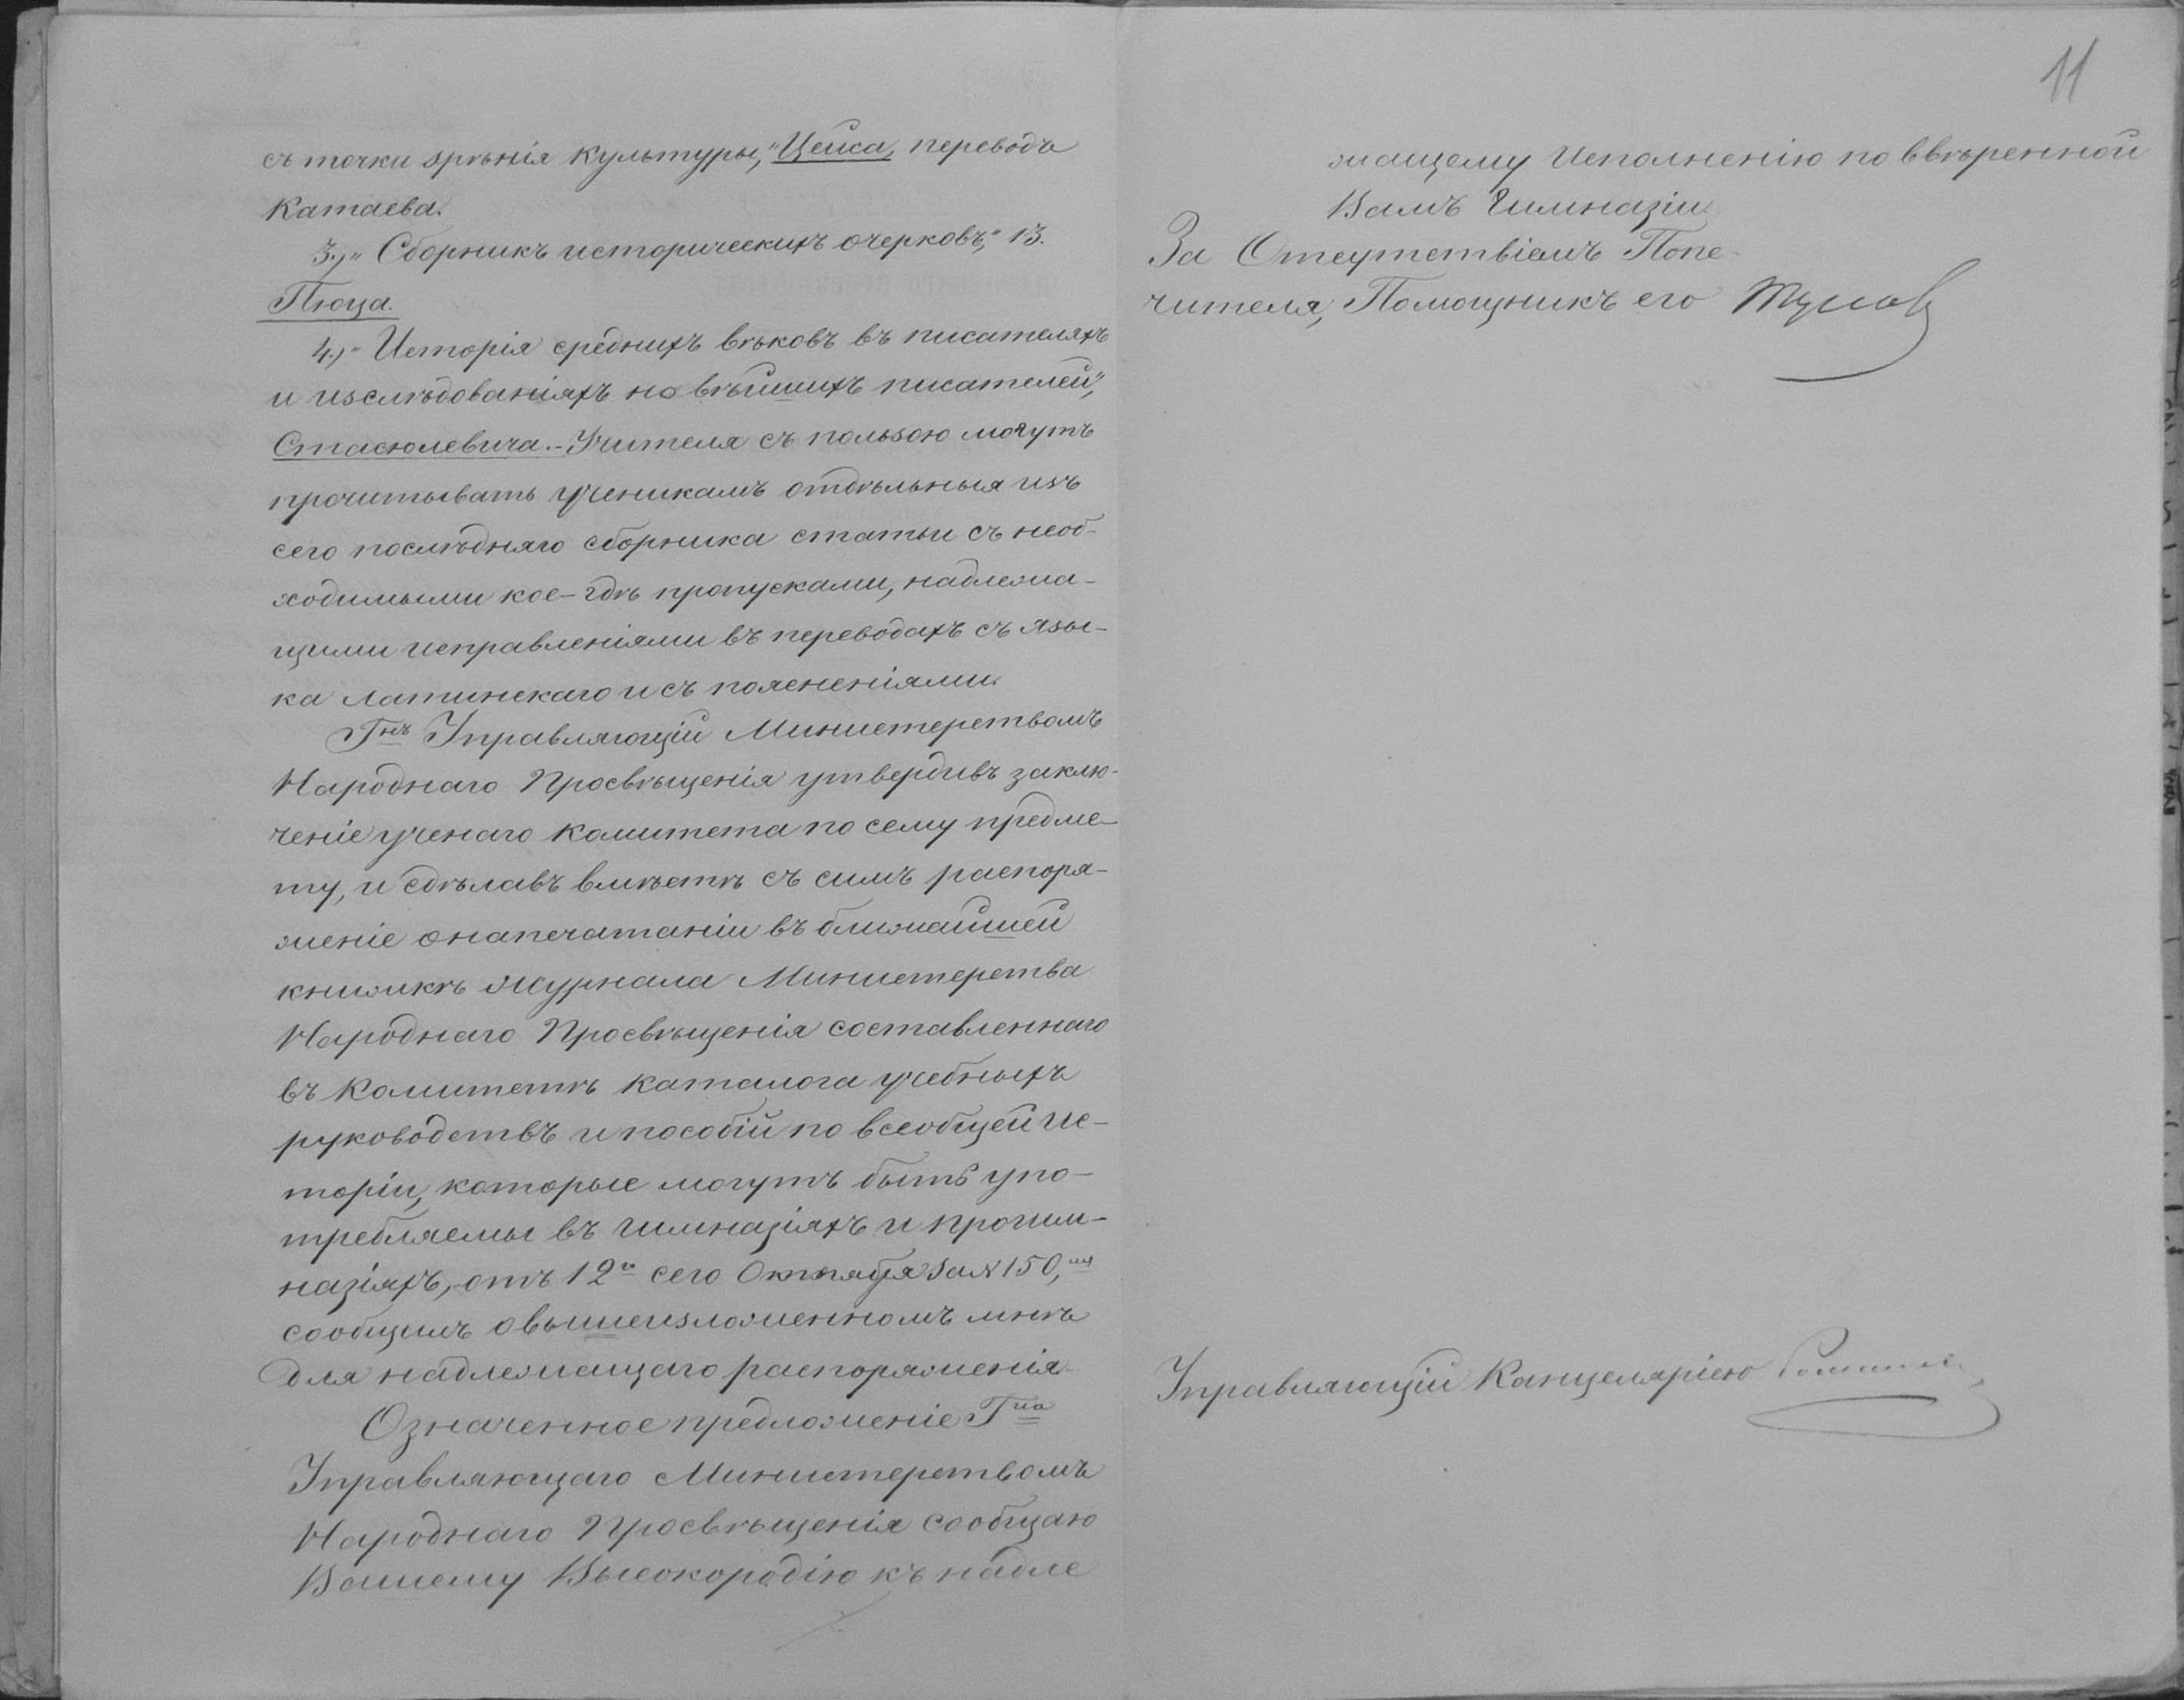 съ точки зрѣнія культуры," Цейса, переводъ
Катаева.
3., "Сборникъ историческихъ очерковъ," В.
Пюца.
4., "Исторія среднихъ вѣковъ въ писателяхъ
и изслѣдованіяхъ новѣйшихъ писателей,"
Стасюлевича. - Учителя съ пользою могутъ
прочитывать ученикамъ отдѣльныя изъ
сего послѣдняго сборника статьи съ необ-
ходимыми кое-гдѣ пропусками, надлежа-
щими исправленіями въ переводахъ съ язы-
ка латинскаго и съ поясненіями.
Гнъ Управляющій Министерствомъ
Народнаго Просвѣщенія утвердивъ заклю-
ченіе ученаго комитета по сему предме-
ту, и сдѣлавъ вмѣстѣ съ симъ распоря-
женіе о напечатаніи въ ближайшей
книжкѣ журнала Министерства
Народнаго Просвѣщенія составленнаго
въ Комитетѣ каталога учебныхъ
руководствъ и пособій по всеобщей Ис-
торіи, которые могутъ быть упо-
требляемы въ гимназіяхъ и прогим-
назіяхъ, отъ 12го сего Октября за № 150,
сообщилъ о вышеизложенномъ мнѣ
для надлежащаго распоряженія.
Означенное предложеніе Гна
Управляющаго Министерствомъ
Народнаго Просвѣщенія сообщаю
Вашему Высокородію къ надле
11
жащему исполненію по ввѣренной
Вамъ Гимназіи.
За Отсутствіемъ Попе-
чителя, Помощникъ его
Управляющій Канцеляріею